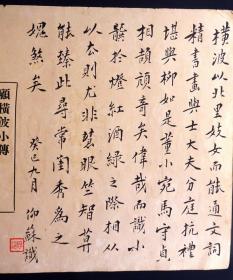 橫波以北里妓女而能通文詞
精書畫與士大夫分庭抗禮
堪與柳如是董小宛馬守貞
相頡頏奇矣偉哉而識小
髯於燈紅酒綠之際相從
以去則尤非慧眼慧智莫
能臻此尋常閨秀為之
愧煞矣
癸巳九月 仰蘇識
顧橫波小傳